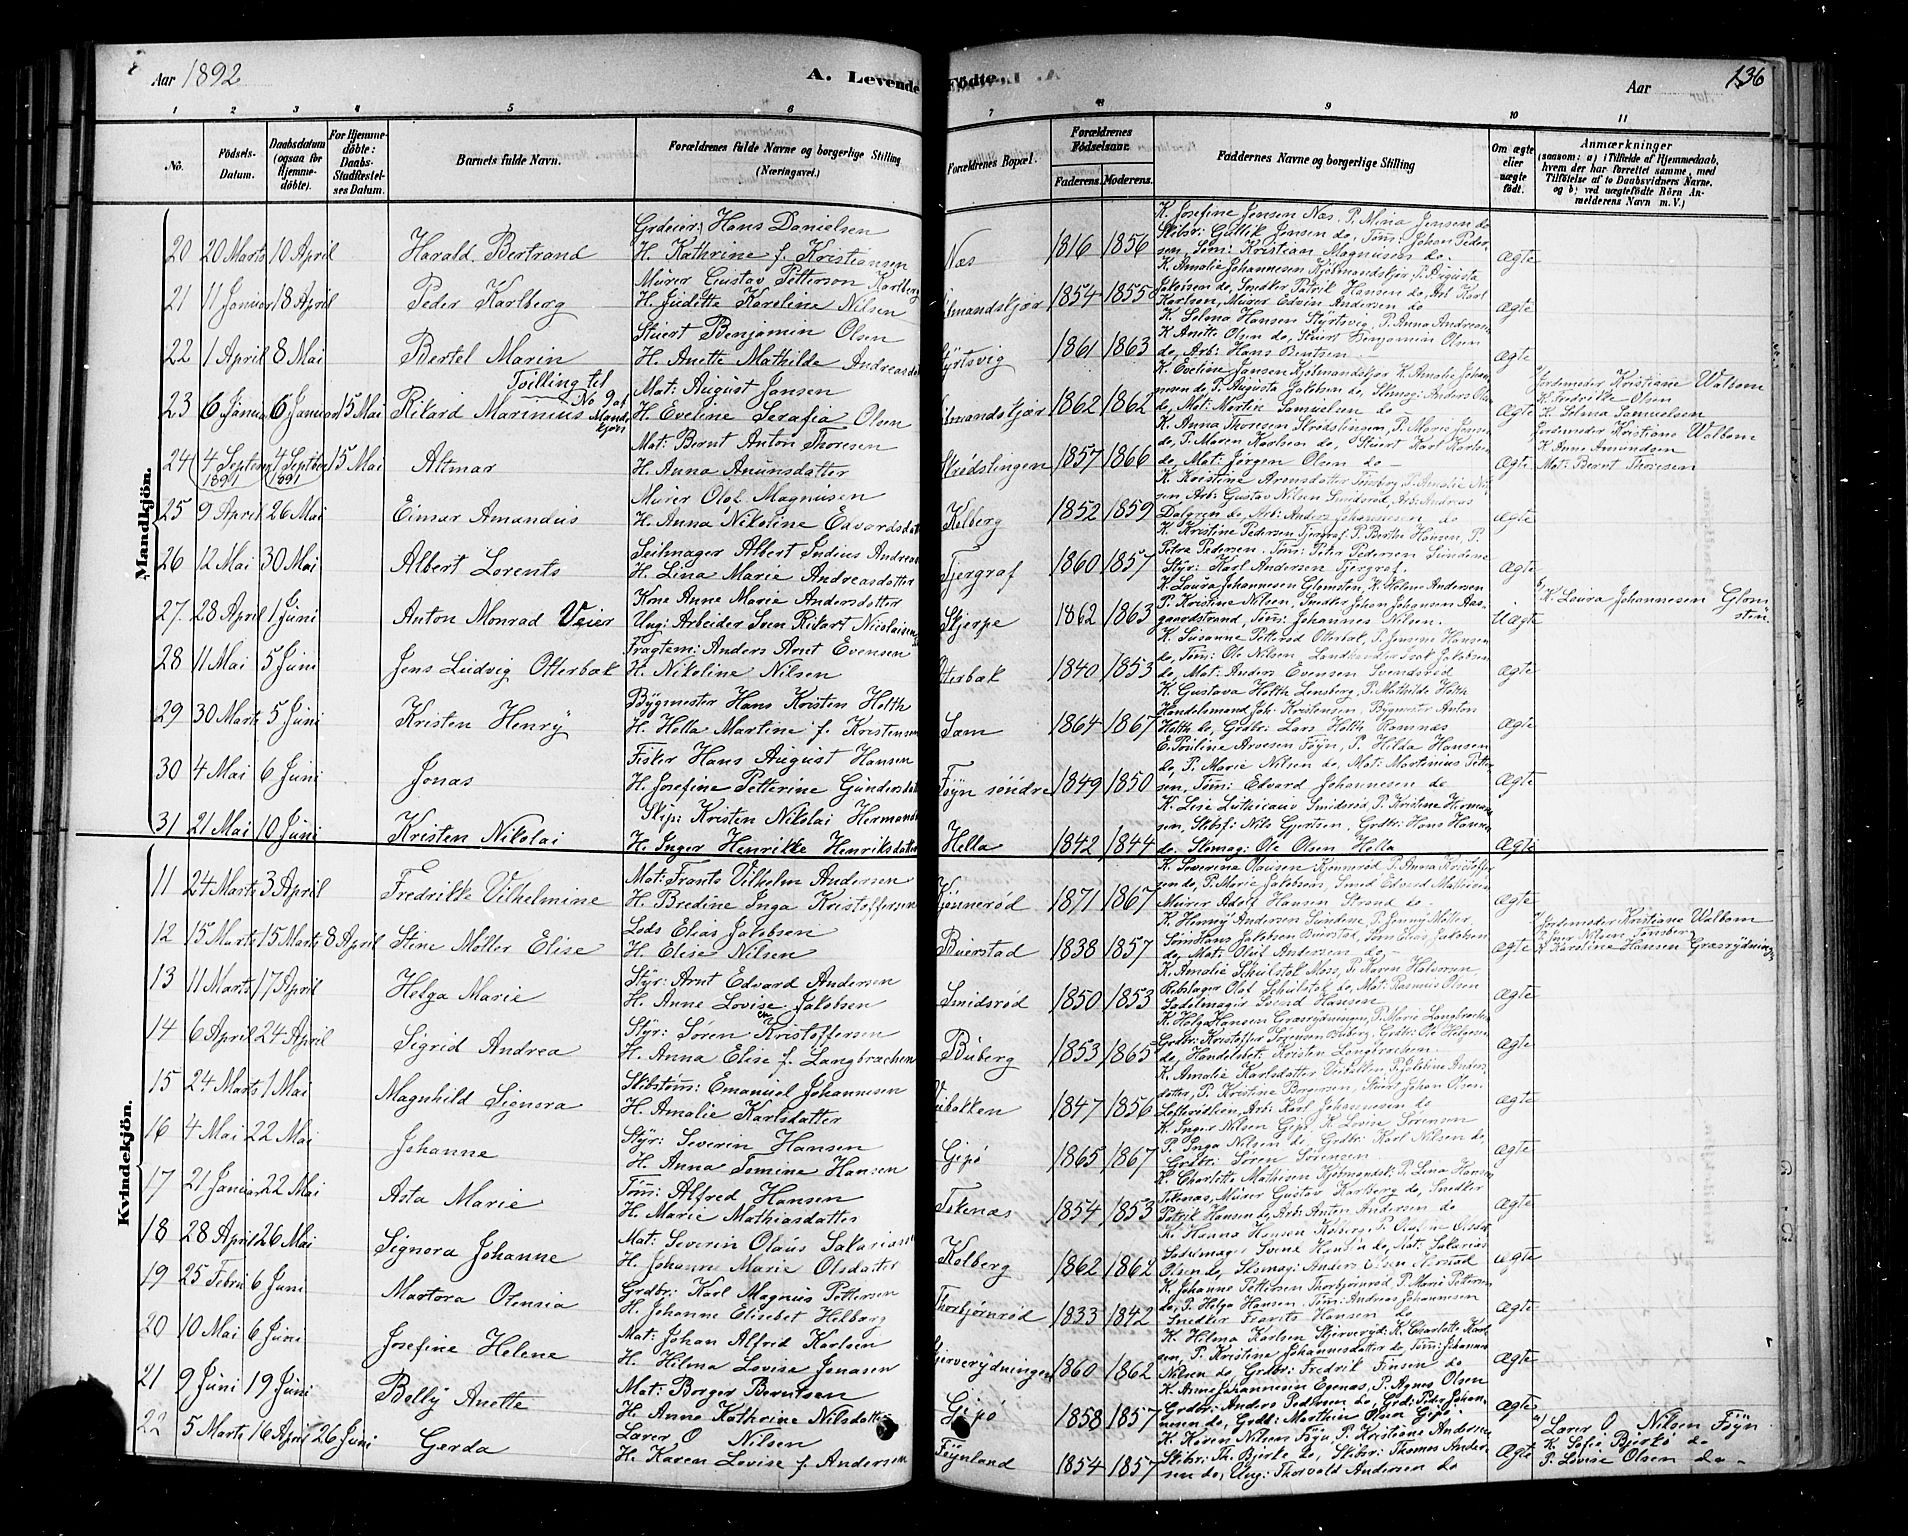 Aar 1892
A. Levende Födte.
Aar
136
1 2 3 4 5 6 7 8 9 10 11
No.
Födsels-Datum.
Daabsdatum (ogsaa for Hjemme-döbte).
For Hjemme-döbte: Daabs-Stadfæstel-ses Datum.
Barnets fulde Navn.
Forældrenes fulde Navne og borgerlige Stilling (Næringsvei.)
Forældrenes Bopæl.
Forældrenes Födselsaar.
Faderens. Moderens.
Faddernes Navne og borgerlige Stilling
Om ægte eller uægte födt.
Anmærkninger
(saasom: a) i Tilfælde af Hjemmedaab,
hvem der har forrettet samme, med
Tilföielse af to Daabsvidners Navne,
og b) ved uægtefödte Börn An-
melderens Navn m. V.)
Mandkjön.
20 20 Marts 10 April Harald Bertrand
Grdeier: Hans Danielsen
H. Kathrine f. Kristiansen
Næs 1816 1856
K. Josefine Jensen Næs, P. Mina Jensen do
Skibr: Gullik Jensen do, Tøm: Johan Peder-
sen, Tøm: Kristian Magnusen do
Ægte
21 11 Januar 18 April Peder Karlberg
Murer Gustav Petterson Karlberg
H. Judette Kareline Nilsen
1854 1855
K. Amalie Johannesen Kjøbmandskjær, P. Augusta
Jakobsen do, Snedker Patrik Hansen do, Arb: Karl
Karlsen, Murer Edvin Andersen do
Ægte
22 1 April 8 Mai Bertel Marin
Stuert Benjamin Olsen
H. Anette Mathilde Andreasdat
1861 1863
K. Selma Hansen Styrtsvig, P. Anna Andreas
K. Anette Olsen do, Stuert Benjamin Olsen
do, Arb: Hans Bentsen
Ægte
23 6 Januar 6 Januar 15 Mai Rikard Marinius
Tvilling til No 9 af Mandkjøn
Mat: August Jansen
H. Eveline Serafia Olsen
1862 1862
K. Eveline Jansen Kjøbmandskjær K. Amalie Johan-
nesen do, P. Augusta Jakobsen do, Skomag: Anders Olsen
do, Mat: Martin Samuelsen do
Ægte
a) Jordemoder Kristiane Walbom
K. Fredrikke Olsen
K. Selma Samuelsen
24 4 Septemb 1891 4 Septber 1891 15 Mai Altmar
Mat: Bernt Anton Thoresen
H. Anna Amunsdatter
Skrødslingen 1857 1866
K. Anna Thoresen Skrødslingen, P. Marie Jensen
do, P. Maren Karlsen do, Stuert Karl Karlsen
do, Mat: Jørgen Olsen do
Ægte
Jordemoder Kristiane Walbom
K. Anne Amundsen
Mat: Bernt Thoresen
25 9 April 26 Mai Einar Amandus
Murer Olaf Magnusen
H. Anna Nikoline Edvardsdat
Kolberg 1852 1859
K. Kristine Arensdatter Tønsberg P. Amalie Nil-
sen, Arb: Gustav Nilsen Smidsrød, Arb: Andreas
Dalgren do, Arb: Anders Johannesen do
Ægte
26 12 Mai 30 Mai Albert Lorents
Seilmager Albert Julius Andreas
H. Lina Marie Andreasdatter
Fjergraf 1860 1857
K. Kristine Pedersen Fjergraf, P. Berthe Hansen, P.
Petra Pedersen, Tøm: Peter Pedersen Sundene
Styr: Karl Andersen Fjergraf.
Ægte
27. 28 April 1 Juni Anton Monrad Veier
Kone Anne Marie Andersdatter
Ung: Arbeider Sven Rikart Nicolaisen
Skjerpe 1862 1863
K. Laura Johannesen Glomsten, K. Helene Andersen
P. Kristine Nilsen, Snedker Johan Johansen Aas-
gaardstrand, Tøm: Johannes Nilsen.
Uægte
b) K. Laura Johannesen Glomsten
28 11 Mai 5 Juni Jens Ludvig Otterbæk
Fragtem: Anders Arnt Evensen
H. Nikoline Nilsen
1840 1853
K. Susanne Petterød Ottestal, P. Jensine Hansen
do, Tøm: Ole Nilsen, Landhandler Isak Jakobsen
do, Mat: Anders Evensen Svendsrød
Ægte
29 30 Marts 5 Juni Kristen Henry
Bygmester Hans Kristen Holth
H. Hella Martine f. Kristensen
Sem 1864 1867
K. Gustava Holth Lensberg, P. Mathilde Holth
Handelsmand Joh: Kristensen, Bygmester Anton
Holth do, Grdbr: Lars Holth Ramnæs
Ægte
30 4 Mai 6 Juni Jonas
Fisker Hans August Hansen
H. Josefine Petterine Gundersdat
Føyn søndre 1849 1850
E. Pouline Arvesen Føyn, P. Hilda Hansen
do, P. Marie Nilsen do, Mat: Martinius Petter-
sen, Tøm: Edvard Johannesen do
Ægte
31 21 Mai 10 Juni Kristen Nikolai
Skip: Kristen Nikolai Hermands
H. Inger Henrikke Henriksdatter
Hella 1842 1844
K. Lise Smidsrød, P. Kristine Herman-
sen, Skibsf: Nils Gjertsen, Grdbr: Hans Hansen
do, Skomag: Ole Olsen Hella
Ægte
Kvindekjön.
11 24 Marts 3 April Fredrikke Vilhelmine
Mat: Frants Vilhelm Andersen
H. Bredine Inga Kristoffersen
Kjønnerød 1871 1867
K. Severine Olausen Kjønnerød, P. Anna Kristoffer-
sen do, P. Marie Jakobsen, Smed Edvard Mathisen
Murer Adolf Hansen Strand do
Ægte
12 15 Marts 15 Marts 8 April Stine Møller Elise
Lods Elias Jakobsen
H. Elise Nilsen
Buerstad 1838 1857
K. Henny Andersen Sundene, P. Jenny Møller,
Tøm: Hans Jakobsen Buerstad, Tøm: Elias Jakobsen
do, Mat: Oluf Andersen do
Ægte
a) Jordemoder Kristiane Walbom
Nilsen Tønsberg
K. Karoline Hansen Græsrydningen
13 11 Marts 17 April Helga Marie
Styr: Arnt Edvard Andersen
H. Anne Lovise Jakobsen
Smidsrød 1850 1853
K. Amalie Skulstok Moss, P. Maren Halvorsen,
Rebslager Olaf Skulstok do, Mat: Rasmus Olsen
Sadelmager Svend Hansen
Ægte
14 6 April 24 April Sigrid Andrea
Styr: Søren Kristoffersen
H. Anna Elise f. Langbrachen
Buberg 1853 1865
K. Helga Hansen Græsrydningen, P. Marie Langbrachen
Grdbr: Kristoffer Sørensen Buberg, Grdbr: Ole Helgesen
do, Handelsbet: Kristen Langbrachen
Ægte
15 24 Marts 1 Mai Magnhild Signora
Skibstøm: Emanuel Johannesen
H. Amalie Karlsdatter
1847 1856
K. Amalie Karlsdatter Veibakken, P. Josefine Anders-
datter, P. Kristine Borgersen, Skibr: Johan Olsen
Arb: Karl Johannesen do
Ægte
16 4 Mai 22 Mai Johanne
Styr: Severin Hansen
H. Anna Tomine Hansen
Gipø 1865 1867
K. Inger Nilsen Gipø, K. Lovise Sørensen
P. Inga Nilsen do, Grdbr: Karl Nilsen do,
Grdbr: Søren Sørensen
Ægte
17 21 Januar 22 Mai Asta Marie
Tøm: Alfred Hansen
H. Marie Mathiasdatter
Tokenæs 1854 1853
K. Charlotte Mathisen Kjøbmandsk: P. Lina Hansen
Tokenæs, Murer Gustav Karlberg do, Snedker
Patrik Hansen do, Arb: Anton Andersen do
Ægte
18 28 April 26 Mai Signora Johanne
Mat: Severin Olaus Sakariasen
H. Johanne Marie Olsdatter
Kolberg 1862 1862
K. Hanna Hansen Kolberg, P. Olufine Olsen
Sadelmager Svend Hansen do, Mat: Sakarias
Olsen do, Skomag: Anders Olsen
Ægte
19 25 Februar 6 Juni Martora Olensia
Grdbr: Karl Magnus Pettersen
H. Johanne Elisebet Helborg
Thorbjørnrød 1833 1842
K. Johanne Pettersen Thorbjørnrød P. Marie Pettersen
do, P. Helga Hansen, Tøm: Andreas Johannesen
Snedker Frants Hansen do
Ægte
20 10 Mai 6 Juni Josefine Helene
Mat: Johan Alfred Karlsen
H. Hilma Lovise Jonasen
1860 1862
K. Helma Karlsen Skjerveryd: K. Charlotte Karl-
sen, P. Kristine Johannesdatter do, Tøm: Johannes
Nilsen do, Grdbr: Fredrik Finsen do
Ægte
21 9 Juni 19 Juni Belly Anette
Mat: Borger Berntsen
H. Anna Kathrine Nilsdatter
Gipø 1858 1857
K. Anne Johannesen Egenæs, P. Agnes Olsen
Grdbr: Anders Pedersen do, Grd: Peder Johan-
nesen do, Grdb: Marthin Olsen Gipø
Ægte
22 5 Marts 16 April 26 Juni Gerda
Lærer O Nilsen
H. Karen Lovise f. Andersen
Føynland 1854 1857
K. Karen Nilsen Føyn, P. Kristiane Andersen
Skibr: Th. Bjerkø do, Skibr: Thomas Ander-
sen do, Ung: Thorvald Andersen do
Ægte
a) Lærer O Nilsen Føyn
K. Sofie Bjerkø do
P. Lovise Olsen do